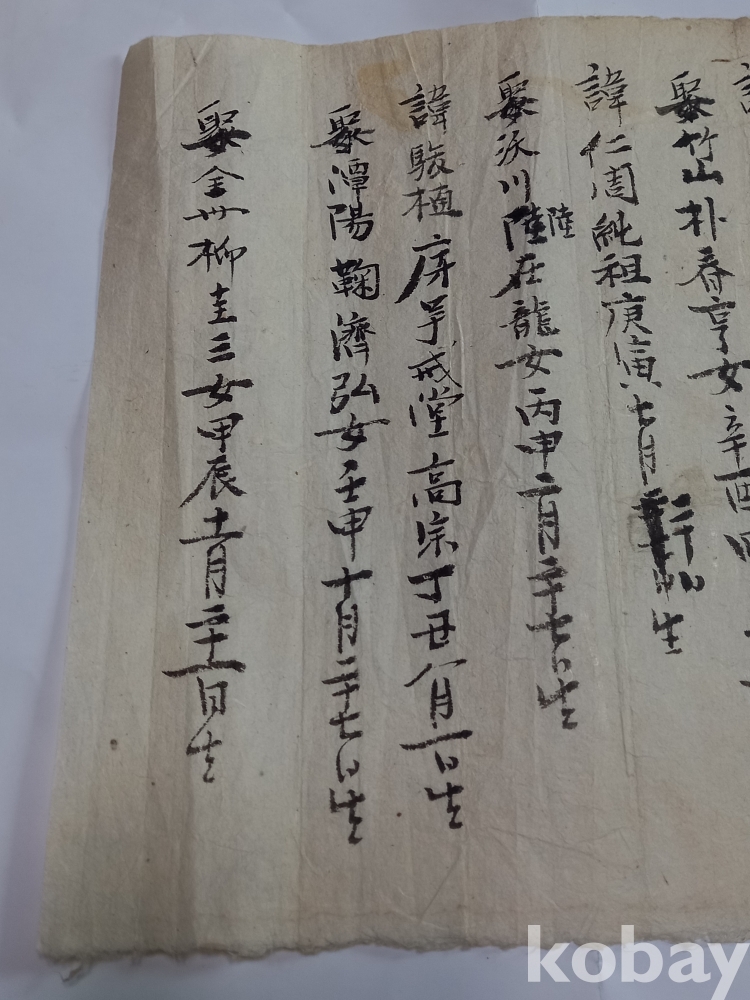 娶竹山朴春亨女辛酉四
諱仁周純祖庚寅七月二十四日生
娶沃川陸陸在龍女丙申二月二十七日生
諱駿植 序号戒堂高宗丁丑八月一日生
娶潭陽鞠濟弘女壬申十月二十七日生
娶全州柳圭三女甲辰十一月二十一日生
kobay